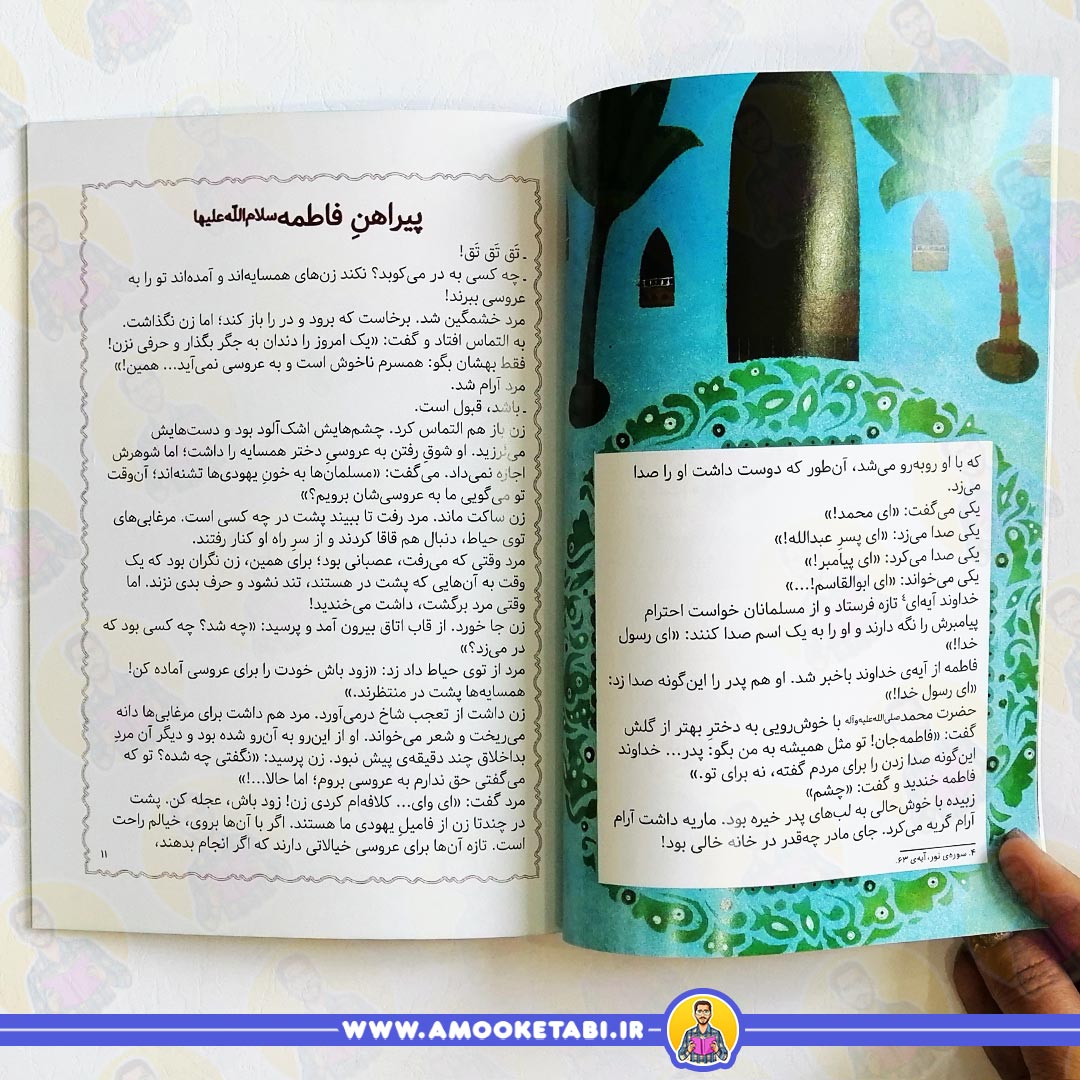 که با او روبه‌رو می‌شد، آن‌طور که دوست داشت او را صدا
می‌زد.
یکی می‌گفت: «ای محمد!»
یکی صدا می‌زد: «ای پسرِ عبدالله!»
یکی صدا می‌کرد: «ای پیامبر!»
یکی می‌خواند: «ای ابوالقاسم!...»
خداوند آیه‌ای⁴ تازه فرستاد و از مسلمانان خواست احترام
پیامبرش را نگه دارند و او را به یک اسم صدا کنند: «ای رسول
خدا!»
فاطمه از آیه‌ی خداوند باخبر شد. او هم پدر را این‌گونه صدا زد:
«ای رسول خدا!»
حضرت محمد صلی‌الله‌علیه‌وآله با خوش‌رویی به دخترِ بهتر از گلش
گفت: «فاطمه‌جان! تو مثل همیشه به من بگو: پدر... خداوند
این‌گونه صدا زدن را برای مردم گفته، نه برای تو.»
فاطمه خندید و گفت: «چشم»
زبیده با خوش‌حالی به لب‌های پدر خیره بود. ماریه داشت آرام
آرام گریه می‌کرد. جای مادر چه‌قدر در خانه خالی بود!
۴. سوره‌ی نور، آیه‌ی ۶۳.
پیراهنِ فاطمه سلام‌الله‌علیها
ـ تَق تَق تَق!
ـ چه کسی به در می‌کوبد؟ نکند زن‌های همسایه‌اند و آمده‌اند تو را به
عروسی ببرند!
مرد خشمگین شد. برخاست که برود و در را باز کند؛ اما زن نگذاشت.
به التماس افتاد و گفت: «یک امروز را دندان به جگر بگذار و حرفی نزن!
فقط بهشان بگو: همسرم ناخوش است و به عروسی نمی‌آید... همین!»
مرد آرام شد.
ـ باشد، قبول است.
زن باز هم التماس کرد. چشم‌هایش اشک‌آلود بود و دست‌هایش
می‌لرزید. او شوقِ رفتن به عروسیِ دختر همسایه را داشت؛ اما شوهرش
اجازه نمی‌داد. می‌گفت: «مسلمان‌ها به خونِ یهودی‌ها تشنه‌اند؛ آن‌وقت
تو می‌گویی ما به عروسی‌شان برویم؟»
زن ساکت ماند. مرد رفت تا ببیند پشت در چه کسی است. مرغابی‌های
توی حیاط، دنبال هم قاقا کردند و از سرِ راه او کنار رفتند.
مرد وقتی که می‌رفت، عصبانی بود؛ برای همین، زن نگران بود که یک
وقت به آن‌هایی که پشت در هستند، تند نشود و حرف بدی نزند. اما
وقتی مرد برگشت، داشت می‌خندید!
زن جا خورد. از قاب اتاق بیرون آمد و پرسید: «چه شد؟ چه کسی بود که
در می‌زد؟»
مرد از توی حیاط داد زد: «زود باش خودت را برای عروسی آماده کن!
همسایه‌ها پشت در منتظرند.»
زن داشت از تعجب شاخ درمی‌آورد. مرد هم داشت برای مرغابی‌ها دانه
می‌ریخت و شعر می‌خواند. او از این‌رو به آن‌رو شده بود و دیگر آن مردِ
بداخلاق چند دقیقه‌ی پیش نبود. زن پرسید: «نگفتی چه شده؟ تو که
می‌گفتی حق ندارم به عروسی بروم؛ اما حالا...!»
مرد گفت: «ای وای... کلافه‌ام کردی زن! زود باش، عجله کن. پشت
در چندتا زن از فامیلِ یهودی ما هستند. اگر با آن‌ها بروی، خیالم راحت
است. تازه آن‌ها برای عروسی خیالاتی دارند که اگر انجام بدهند،
۱۱
WWW.AMOOKETABI.IR